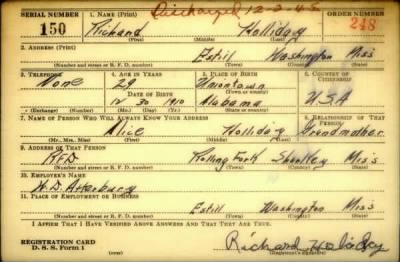 Discharged 12-2-45
SERIAL NUMBER 1. NAME (Print) ORDER NUMBER
150 Richard Holliday 248
(First) (Middle) (Last)
2. ADDRESS (Print)
Estill Washington Miss
(Number and street or R. F. D. number) (Town) (County) (State)
3. TELEPHONE 4. AGE IN YEARS 5. PLACE OF BIRTH 6. COUNTRY OF CITIZENSHIP
None 29 Uniontown
DATE OF BIRTH (Town or county)
12 30 1910 Alabama U.S.A
(Exchange) (Number) (Mo.) (Day) (Yr.) (State or country)
7. NAME OF PERSON WHO WILL ALWAYS KNOW YOUR ADDRESS 8. RELATIONSHIP OF THAT PERSON
Alice Holliday Grandmother
(Mr., Mrs., Miss) (First) (Middle) (Last)
9. ADDRESS OF THAT PERSON
RFD Rolling Fork Miss
(Number and street or R. F. D. number) (Town) (County) (State)
10. EMPLOYER'S NAME
11. PLACE OF EMPLOYMENT OR BUSINESS
Estill Washington Miss
(Number and street or R. F. D. number) (Town) (County) (State)
I AFFIRM THAT I HAVE VERIFIED ABOVE ANSWERS AND THAT THEY ARE TRUE.
REGISTRATION CARD
D. S. S. Form 1 Richard Holiday